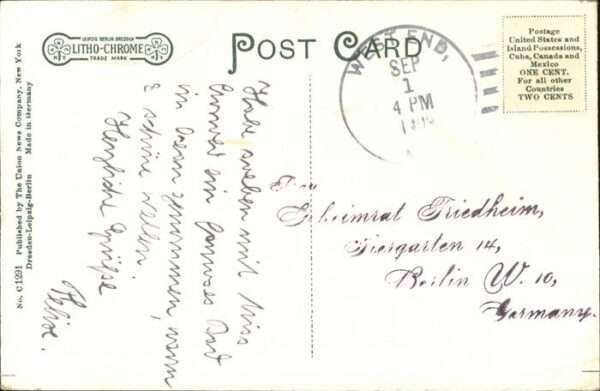 LEIPZIG BERLIN DRESDEN
LITHO-CHROME
TRADE MARK
POST CARD
WEST END,
SEP
1
4 PM
Postage
United States and
Island Possessions,
Cuba, Canada and
Mexico
ONE CENT.
For all other
Countries
TWO CENTS
No. C1291 Published by The Union News Company, New York
Dresden-Leipzig-Berlin Made in Germany
Habe soeben mit Miss
ein famoses Bad
im genommen, warm
& schöne Wellen.
Herzliche Grüße
Frau
Geheimrat Friedheim,
Tiergarten 14,
Berlin W. 10,
Germany.